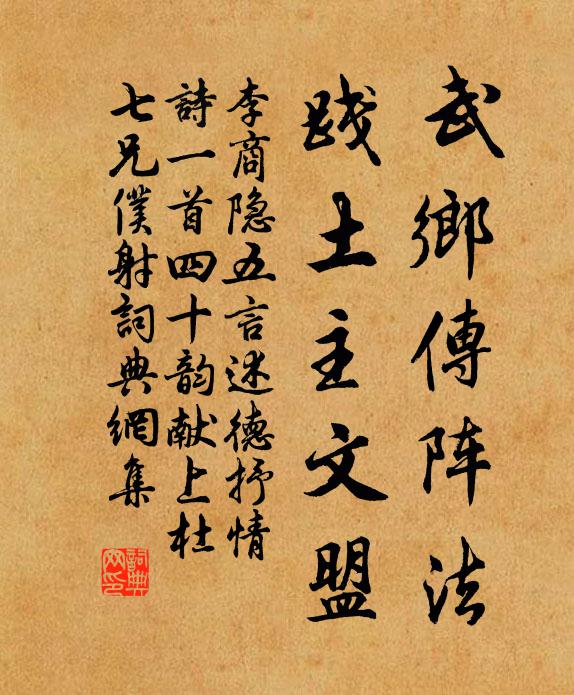 武鄉傳阵法
践土主文盟
李商隐五言述德抒情
詩一首四十韵献上杜
七兄僕射詞典網集
詞典网印